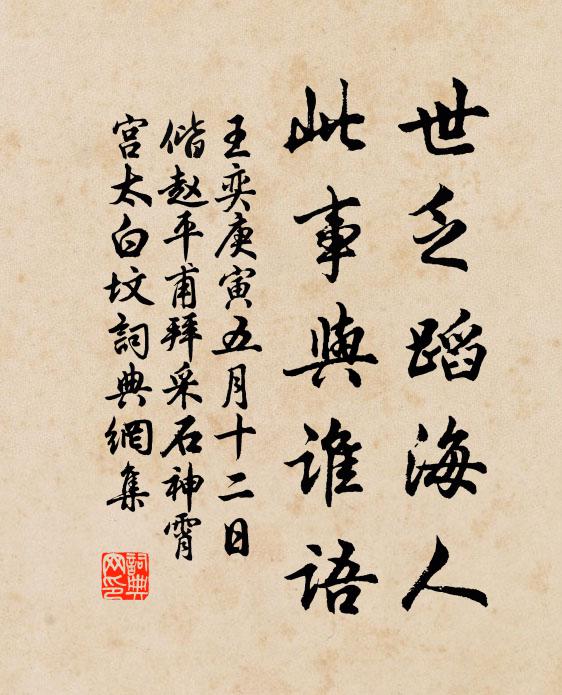 世乏蹈海人
此事與谁語
王奕庚寅五月十二日
偕赵平甫拜采石神霄
宫太白坟詞典網集
詞典
网印